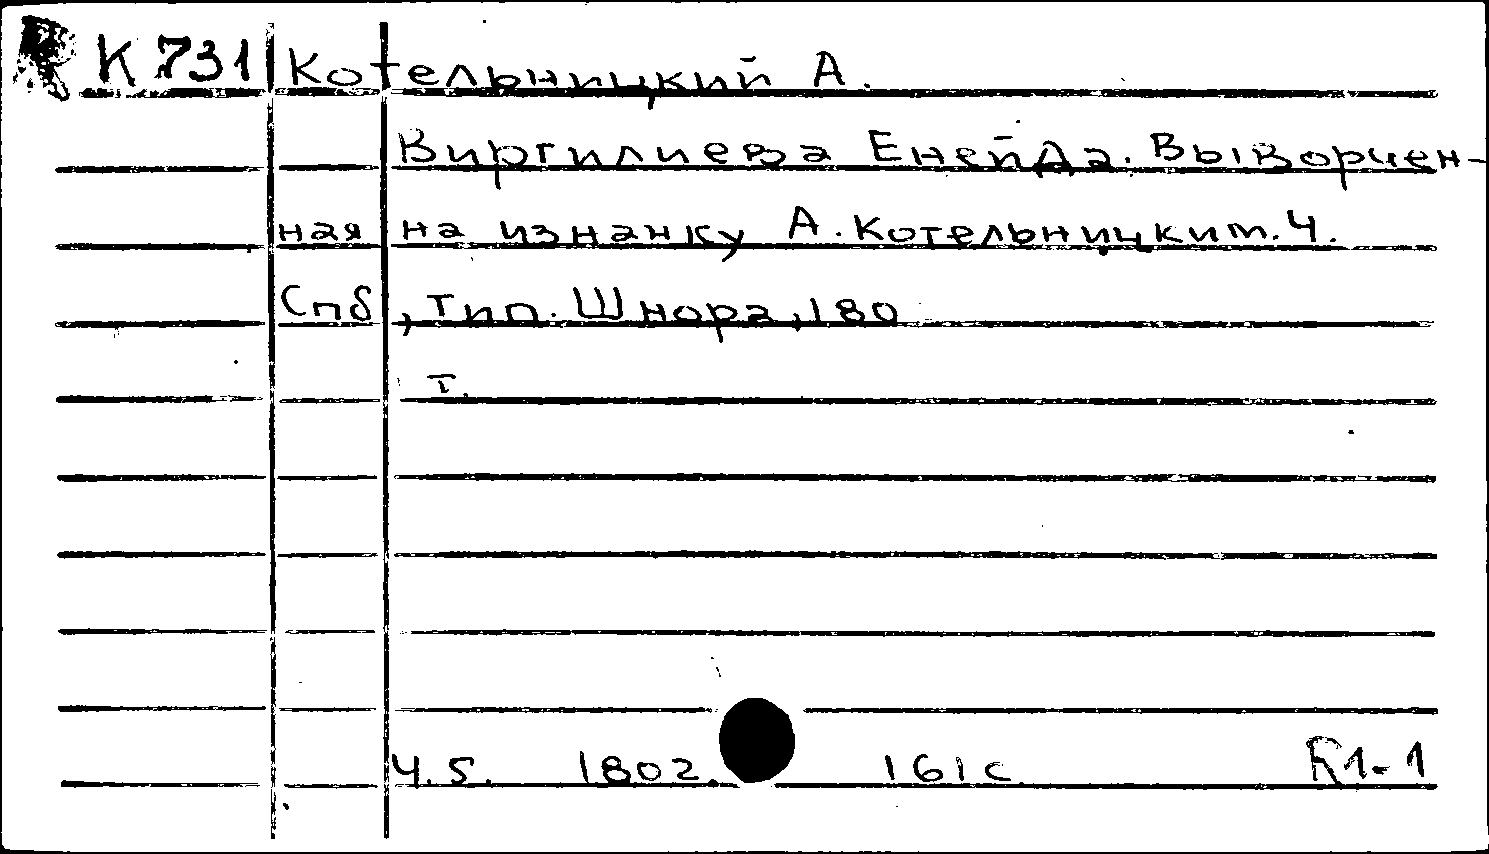 К 731 Котельницкий А.
Виргилиева Енейда. Выворчен-
ная на изнанку А. Котельницким. Ч.
Спб, тип. Шнора, 180
т.
Ч. 5. 1802. 161 с. К1-1